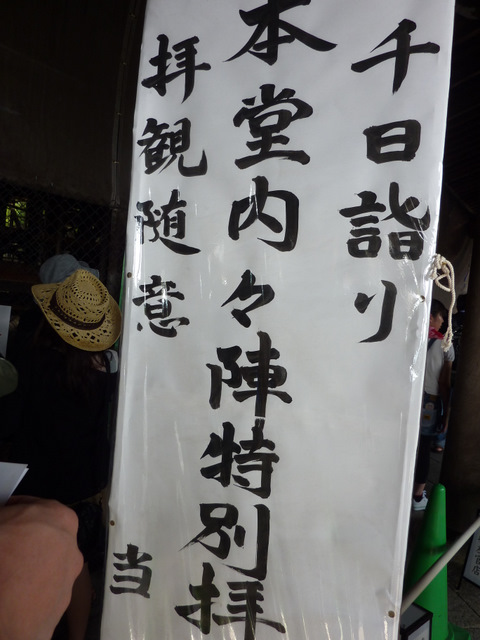 千日詣り
本堂内々陣特別拝
拝観随意
当